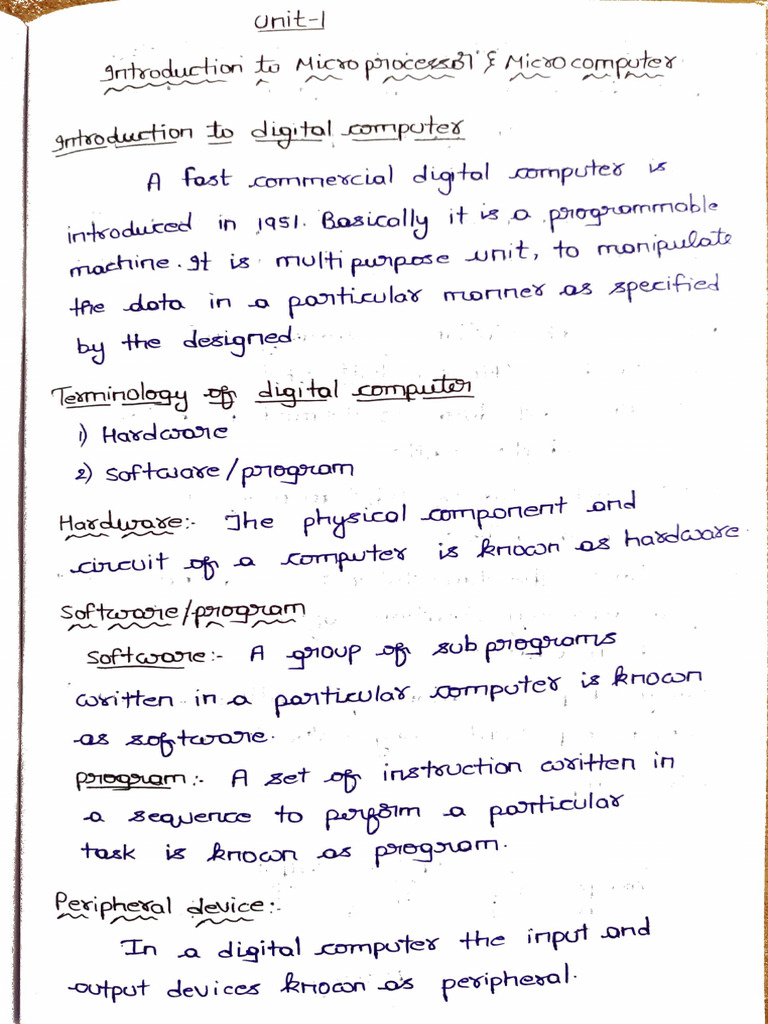 Unit-1
Introduction to Microprocessor & Microcomputer
Introduction to digital computer
A fast commercial digital computer is
introduced in 1951. Basically it is a programmable
machine. It is multipurpose unit, to manipulate
the data in a particular manner as specified
by the designed.
Terminology of digital computer
1) Hardware
2) Software/program
Hardware:- The physical component and
circuit of a computer is known as hardware.
Software/program
Software:- A group of sub programs
written in a particular computer is known
as software.
program:- A set of instruction written in
a sequence to perform a particular
task is known as program.
Peripheral device:-
In a digital computer the input and
output devices known as peripheral.